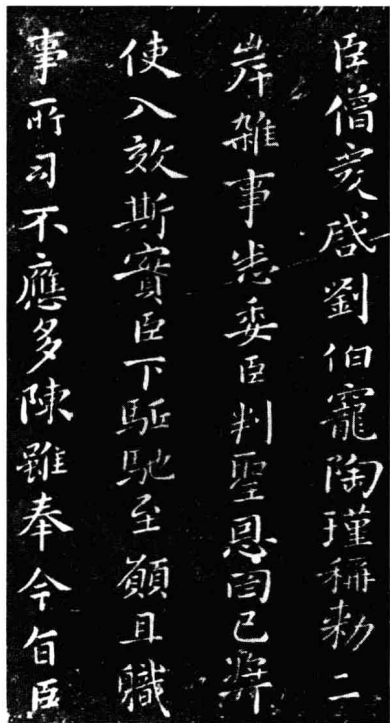 臣僧虔啓劉伯寵陶瑾稱勑二
岸雜事悉委臣判聖恩罔已弊
使入效斯實臣下駈馳至願且職
事所习不應多陳雖奉今旨臣